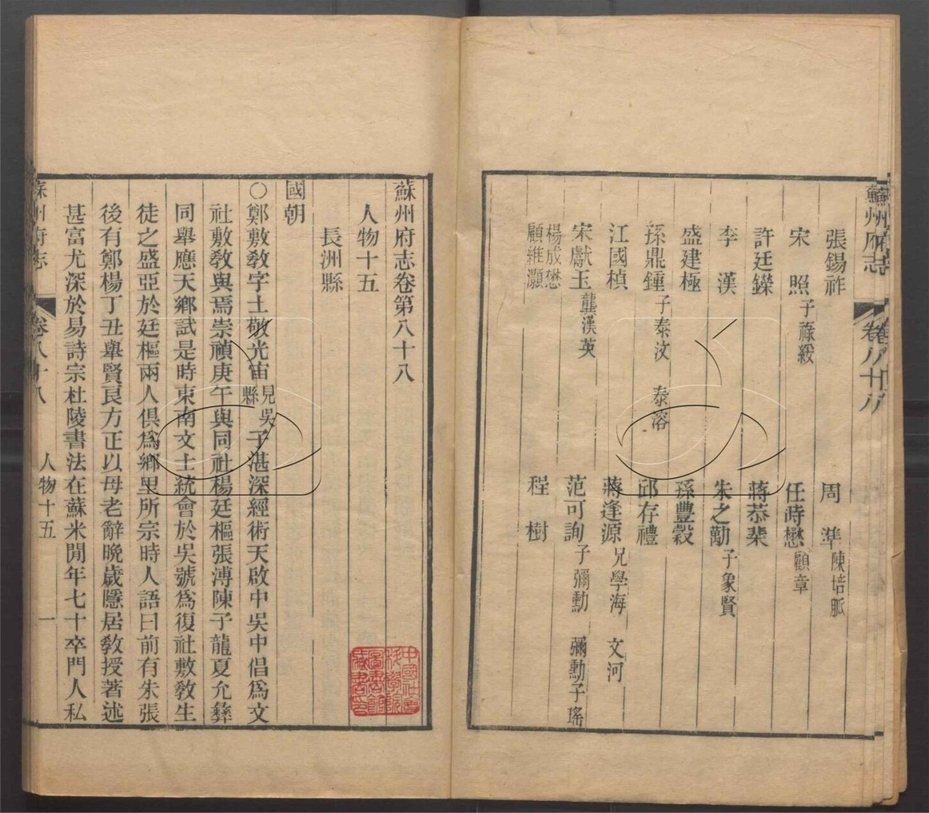 蘇州府志
卷八十八
張錫祚
宋照子祿綏
許廷鑅
李漢
盛建極
孫鼎鍾子泰汶 泰溶
江國楨
宋獻玉龔漢英
楊成懋
顧維灝
周準陳培脈
任時懋顧章
蔣恭棐
朱之勱子象賢
孫豐穀
邱存禮
蔣逢源兄學海 文河
范可詢子彌勳 彌勳子瑤
程樹
蘇州府志卷第八十八
人物十五
長洲縣
國朝
○鄭敷教字士敬光宙見吳縣子湛深經術天啟中吳中倡爲文
社敷教與焉崇禎庚午與同社楊廷樞張溥陳子龍夏允彝
同舉應天鄉試是時東南文士統會於吳號爲復社敷教生
徒之盛亞於廷樞兩人俱爲鄉里所宗時人語曰前有朱張
後有鄭楊丁丑舉賢良方正以母老辭晚歲隱居教授著述
甚富尤深於易詩宗杜陵書法在蘇米閒年七十卒門人私
蘇州府志
卷八十八
人物十五
一